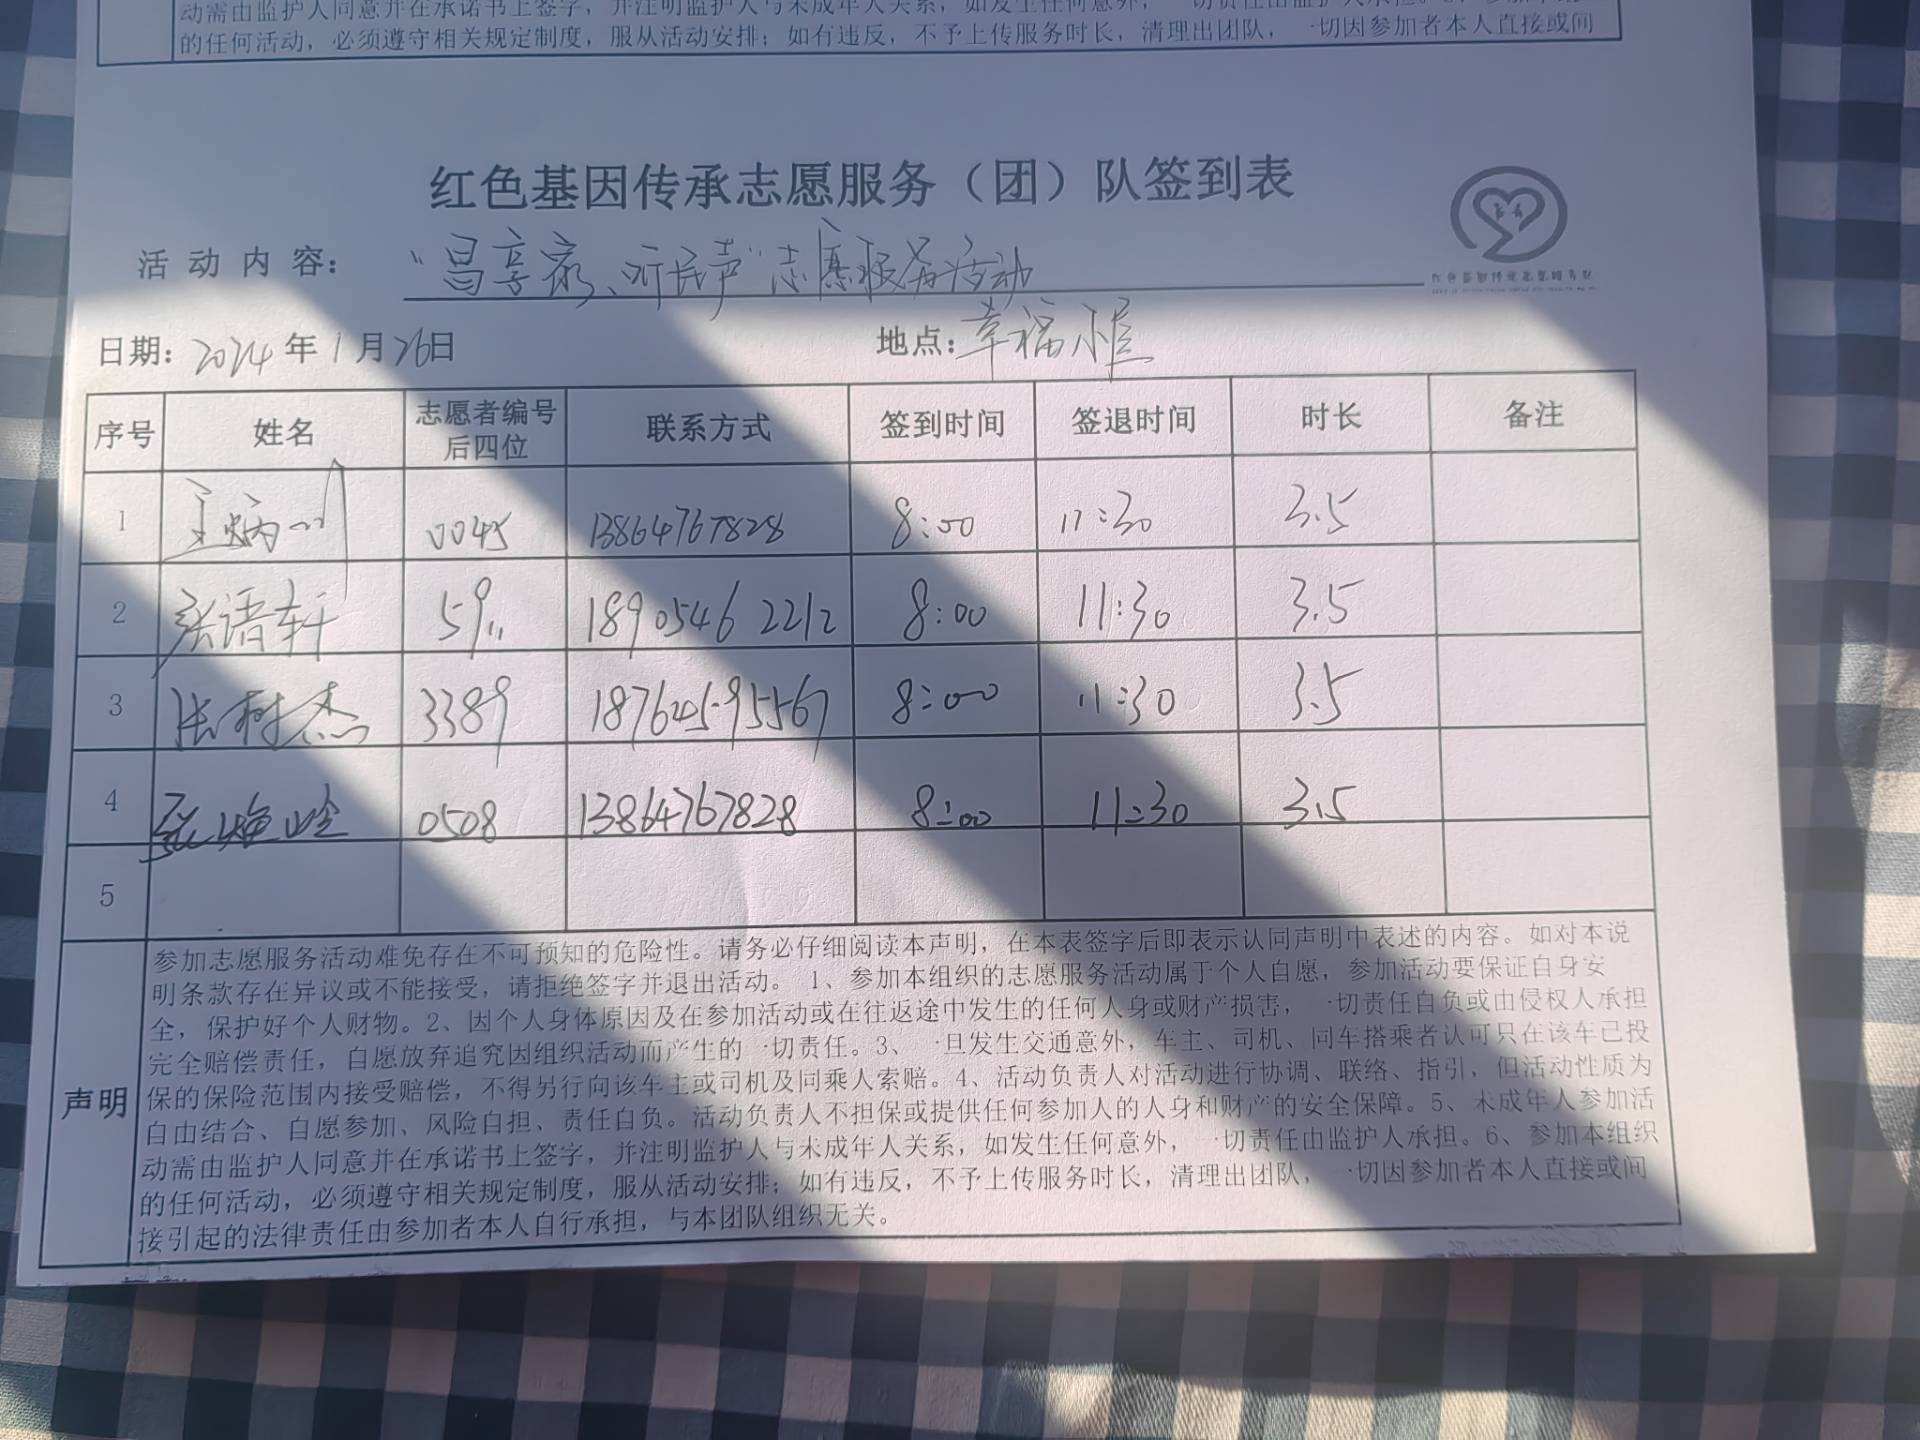 动需由监护人同意并在承诺书上签字，并注明监护人与未成年人关系，如发生任何意外，一切责任由监护人承担。6、参加本组织
的任何活动，必须遵守相关规定制度，服从活动安排；如有违反，不予上传服务时长，清理出团队，一切因参加者本人直接或间
红色基因传承志愿服务（团）队签到表
活动内容： 志愿服务活动
日期：2024年1月26日 地点：幸福小区
序号 姓名 志愿者编号后四位 联系方式 签到时间 签退时间 时长 备注
1 0045 13864767828 8:00 11:30 3.5
2 张语轩 5911 18905462212 8:00 11:30 3.5
3 张树杰 3389 18764595567 8:00 11:30 3.5
4 0508 13864767828 8:00 11:30 3.5
5
声明
参加志愿服务活动难免存在不可预知的危险性。请务必仔细阅读本声明，在本表签字后即表示认同声明中表述的内容。如对本说
明条款存在异议或不能接受，请拒绝签字并退出活动。1、参加本组织的志愿服务活动属于个人自愿，参加活动要保证自身安
全，保护好个人财物。2、因个人身体原因及在参加活动或在往返途中发生的任何人身或财产损害，一切责任自负或由侵权人承担
完全赔偿责任，自愿放弃追究因组织活动而产生的一切责任。3、一旦发生交通意外，车主、司机、同车搭乘者认可只在该车已投
保的保险范围内接受赔偿，不得另行向该车主或司机及同乘人索赔。4、活动负责人对活动进行协调、联络、指引，但活动性质为
自由结合、自愿参加、风险自担、责任自负。活动负责人不担保或提供任何参加人的人身和财产的安全保障。5、未成年人参加活
动需由监护人同意并在承诺书上签字，并注明监护人与未成年人关系，如发生任何意外，一切责任由监护人承担。6、参加本组织
的任何活动，必须遵守相关规定制度，服从活动安排；如有违反，不予上传服务时长，清理出团队，一切因参加者本人直接或间
接引起的法律责任由参加者本人自行承担，与本团队组织无关。